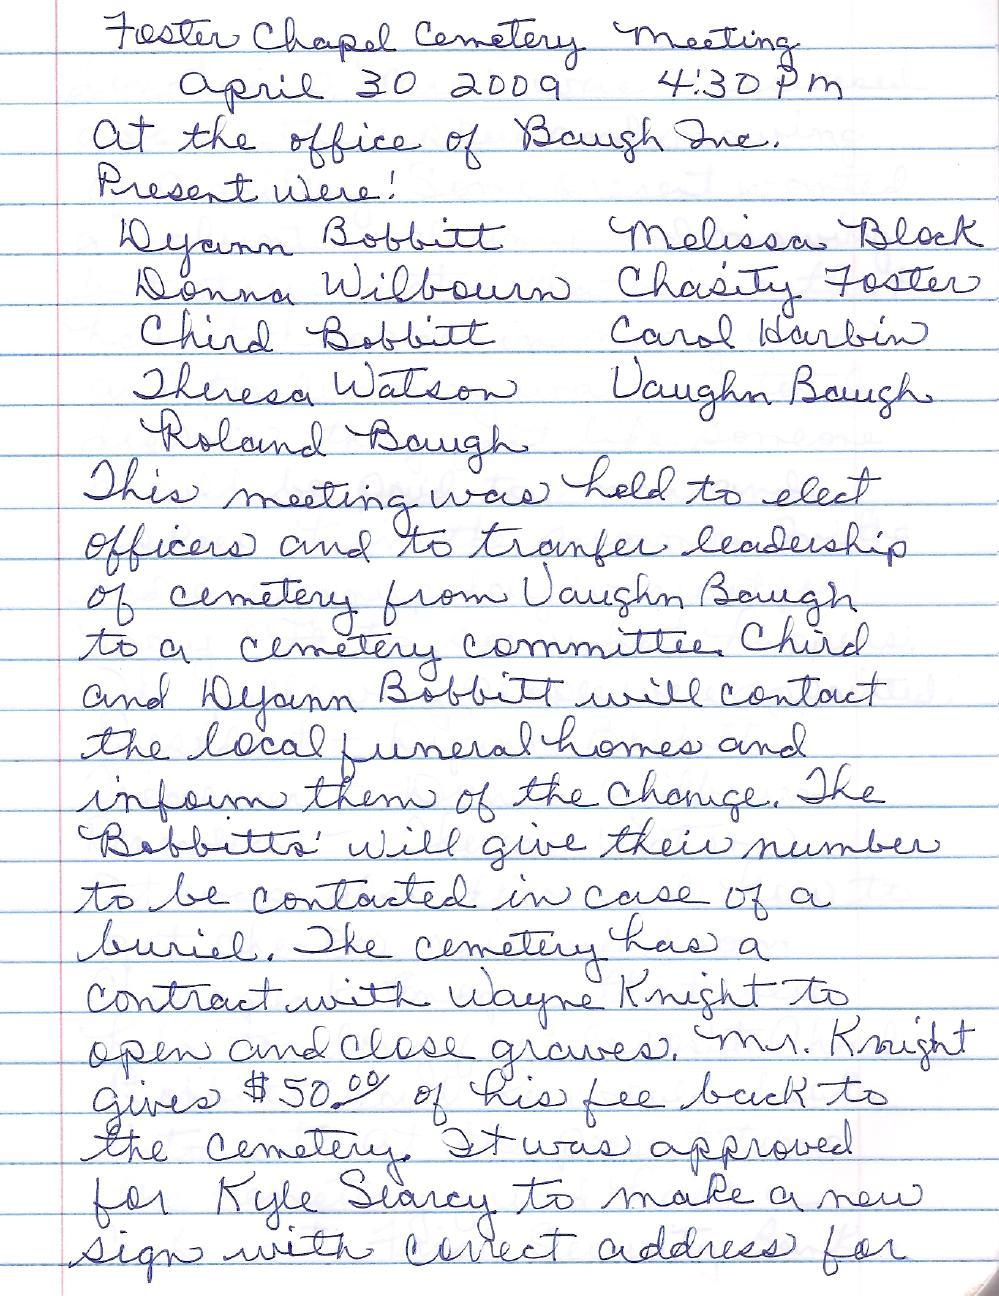 Foster Chapel Cemetery Meeting
April 30 2009 4:30 PM
At the office of Baugh Inc.
Present Were!
Dyann Bobbitt Melissa Block
Donna Wilbourn Chasity Foster
Chird Bobbitt Carol Harbin
Theresa Watson Vaughn Baugh
Roland Baugh
This meeting was held to elect
officers and to tranfer leadership
of cemetery from Vaughn Baugh
to a cemetery committee. Chird
and Dyann Bobbitt will contact
the local funeral homes and
inform them of the change. The
Bobbitts' will give their number
to be contacted in case of a
buriel. The cemetery has a
contract with Wayne Knight to
open and close graves. Mr. Knight
gives $50.00 of his fee back to
the cemetery. It was approved
for Kyle Searcy to make a new
sign with correct address for